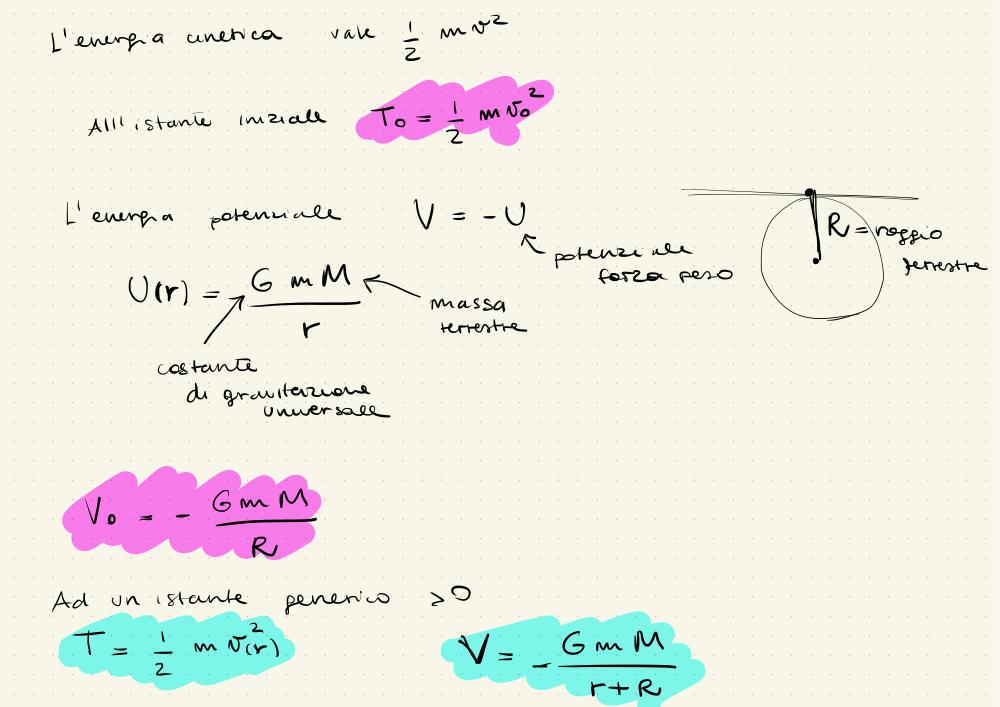 L'energia cinetica vale 1/2 m v²
All'istante iniziale T₀ = 1/2 m v₀²
L'energia potenziale V = - U
potenziale
forza peso
R = raggio
terrestre
U(r) = G m M / r
massa
terrestre
costante
di gravitazione
universale
V₀ = - G m M / R
Ad un istante generico > 0
T = 1/2 m v²(r)
V = - G m M / r + R